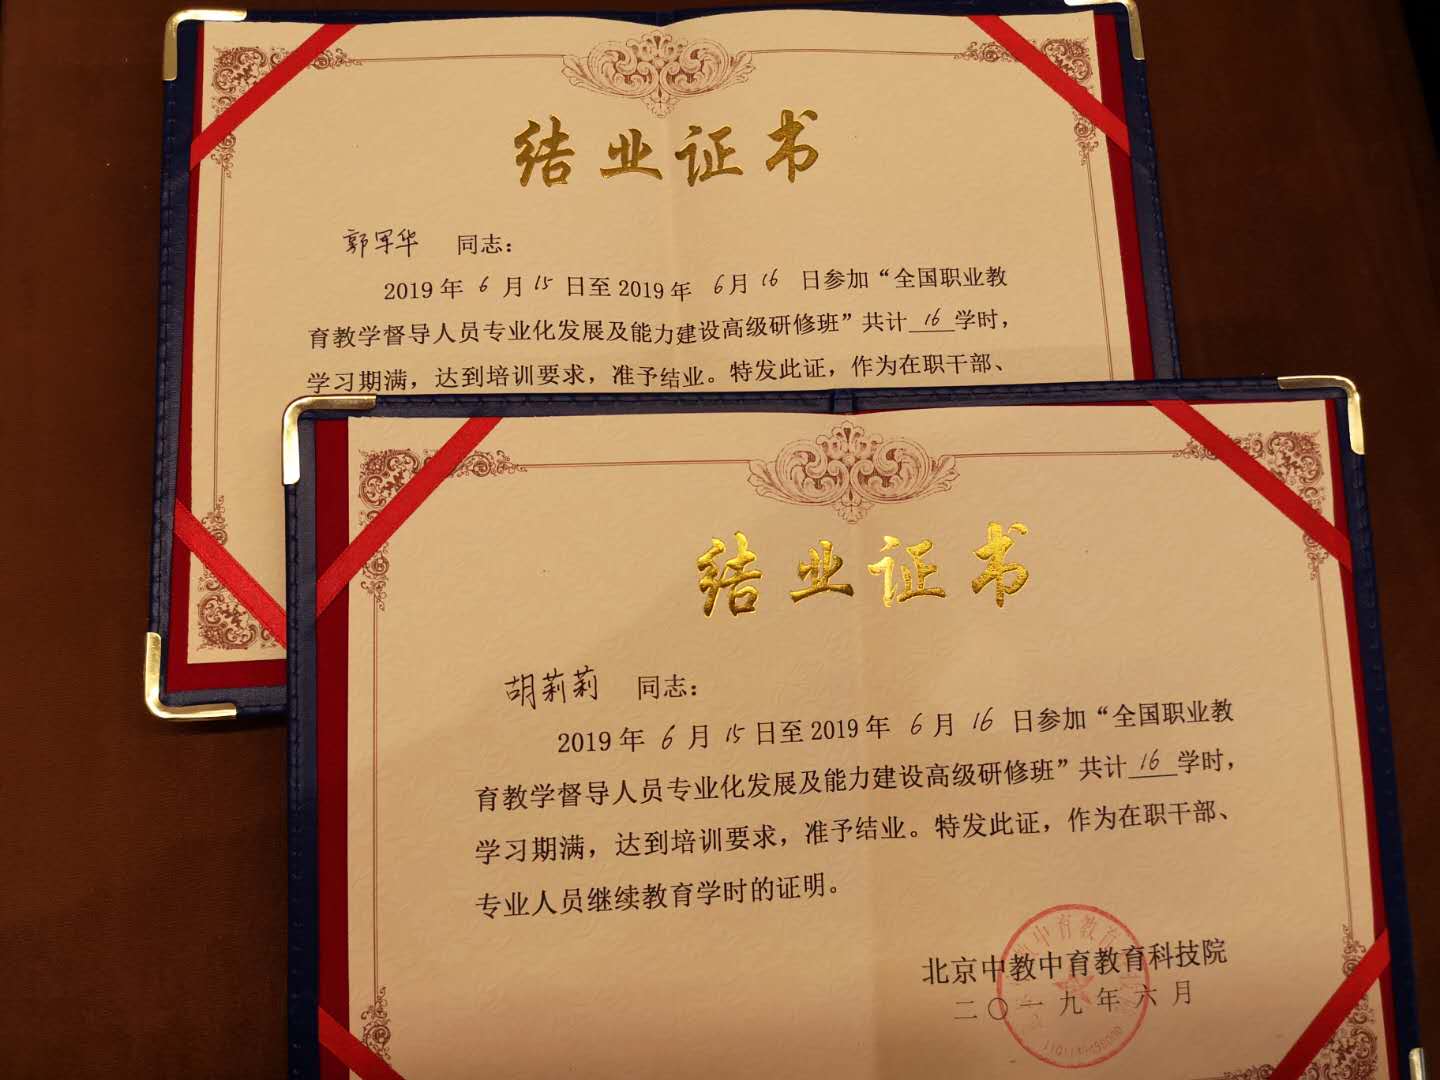 结业证书
郭军华 同志：
2019年 6 月 15 日至2019年 6月 16 日参加“全国职业教
育教学督导人员专业化发展及能力建设高级研修班”共计 16 学时，
学习期满，达到培训要求，准予结业。特发此证，作为在职干部、
结业证书
胡莉莉 同志：
2019年 6 月 15 日至2019年 6 月 16 日参加“全国职业教
育教学督导人员专业化发展及能力建设高级研修班”共计 16 学时，
学习期满，达到培训要求，准予结业。特发此证，作为在职干部、
专业人员继续教育学时的证明。
北京中教中育教育科技院
二〇一九年六月